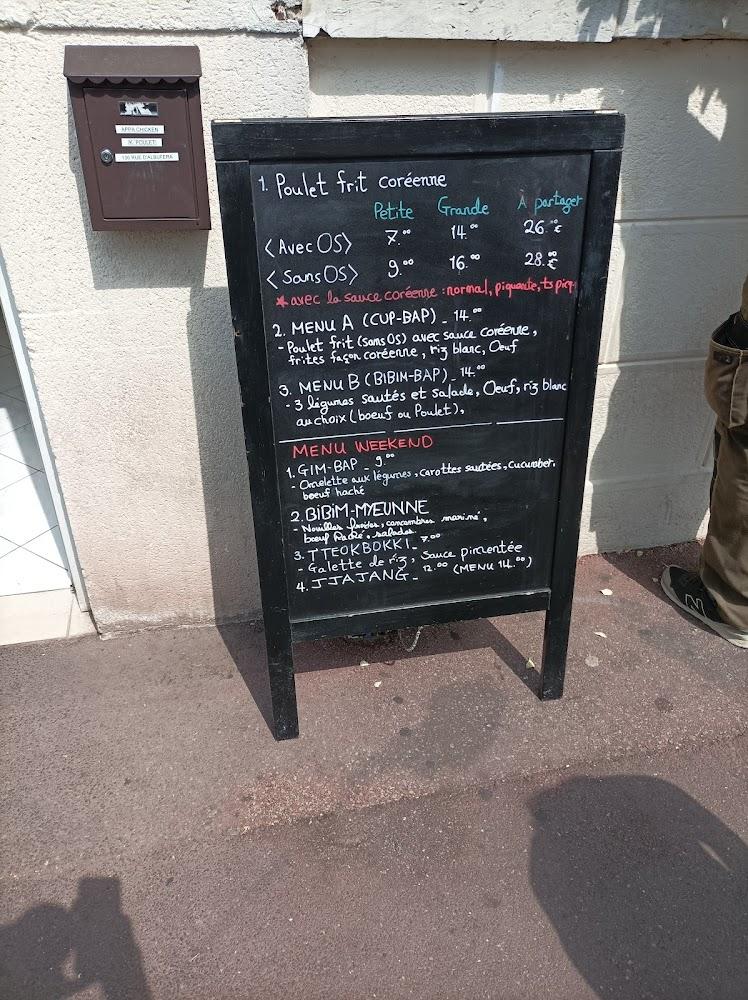 APPA CHICKEN
K. POULET!
130 RUE D'ALBUFERA
1. Poulet frit coréenne
Petite Grande À partager
<Avec OS> 7.00 14.00 26.00€
<Sans OS> 9.00 16.00 28.00€
* avec la sauce coréenne : normal, piquante, ts piq
2. MENU A (CUP-BAP) _ 14.00
- Poulet frit (sans OS) avec sauce coréenne,
frites façon coréenne, riz blanc, Oeuf
3. MENU B (BIBIM-BAP) _ 14.00
- 3 légumes sautés et salade, Oeuf, riz blanc
au choix (boeuf ou Poulet),
MENU WEEKEND
1. GIM-BAP _ 9.00
- Omelette aux légumes, carottes sautées, cucumber,
boeuf haché
2. BIBIM-MYEUNNE
- Nouilles froides, concombres mariné,
bœuf haché, salades
3. TTEOKBOKKI _ 7.00
- Galette de riz, sauce pimentée
4. JJAJANG - 12.00 (MENU 14.00)
N